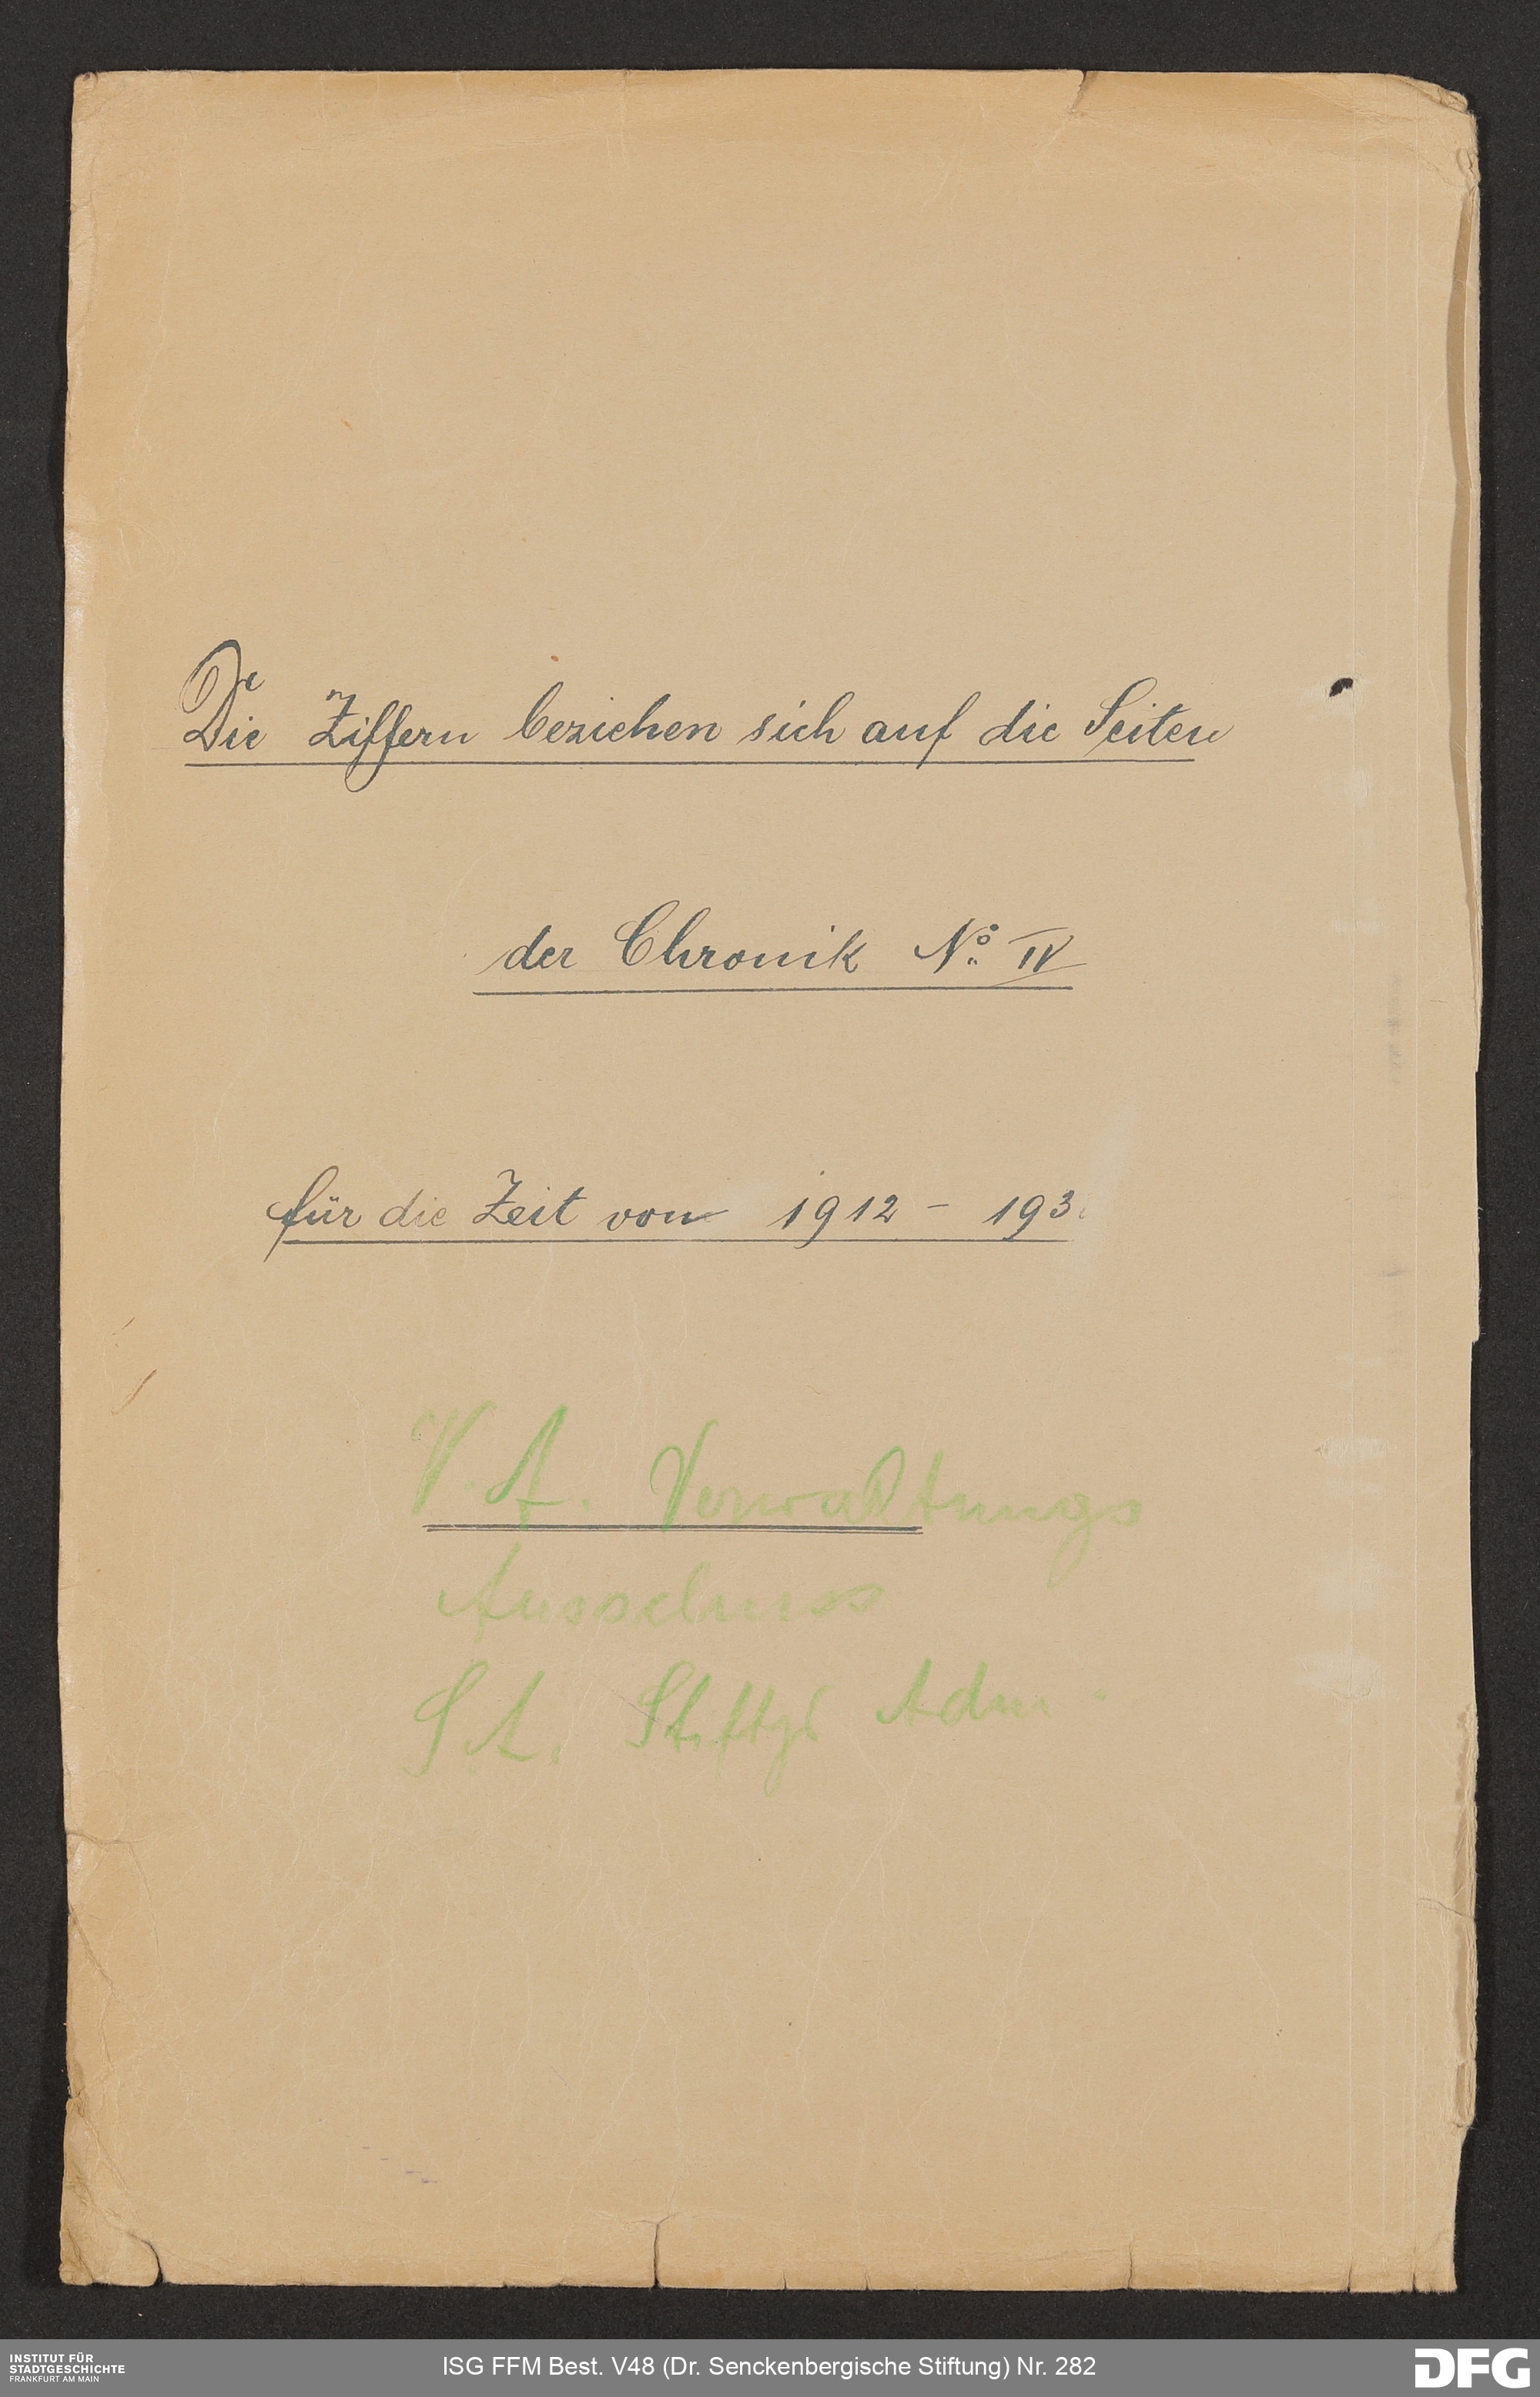 Die Ziffern beziehen sich auf die Seiten
der Chronik No IV
für die Zeit von 1912 – 193
V. A. Verwaltungs
Ausschuss
S A. Stiftgs Adm.
INSTITUT FÜR
STADTGESCHICHTE
FRANKFURT AM MAIN
ISG FFM Best. V48 (Dr. Senckenbergische Stiftung) Nr. 282
DFG